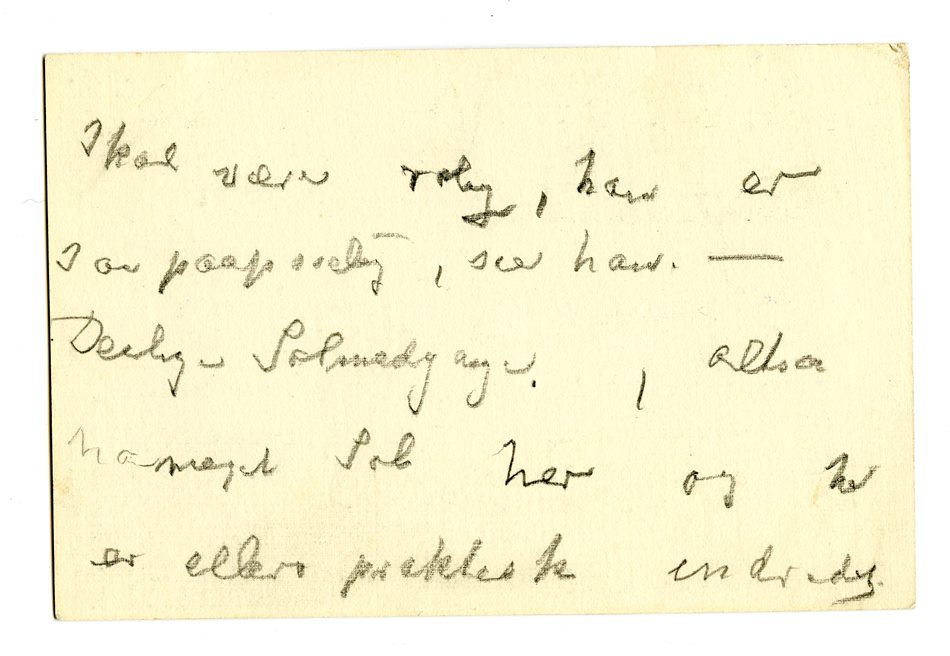 Skal være rolig, han er
saa paapasselig, sier han. —
Deilige Solnedganger. , altsa
har meget Sol her og her
er ellers praktisk indredet.